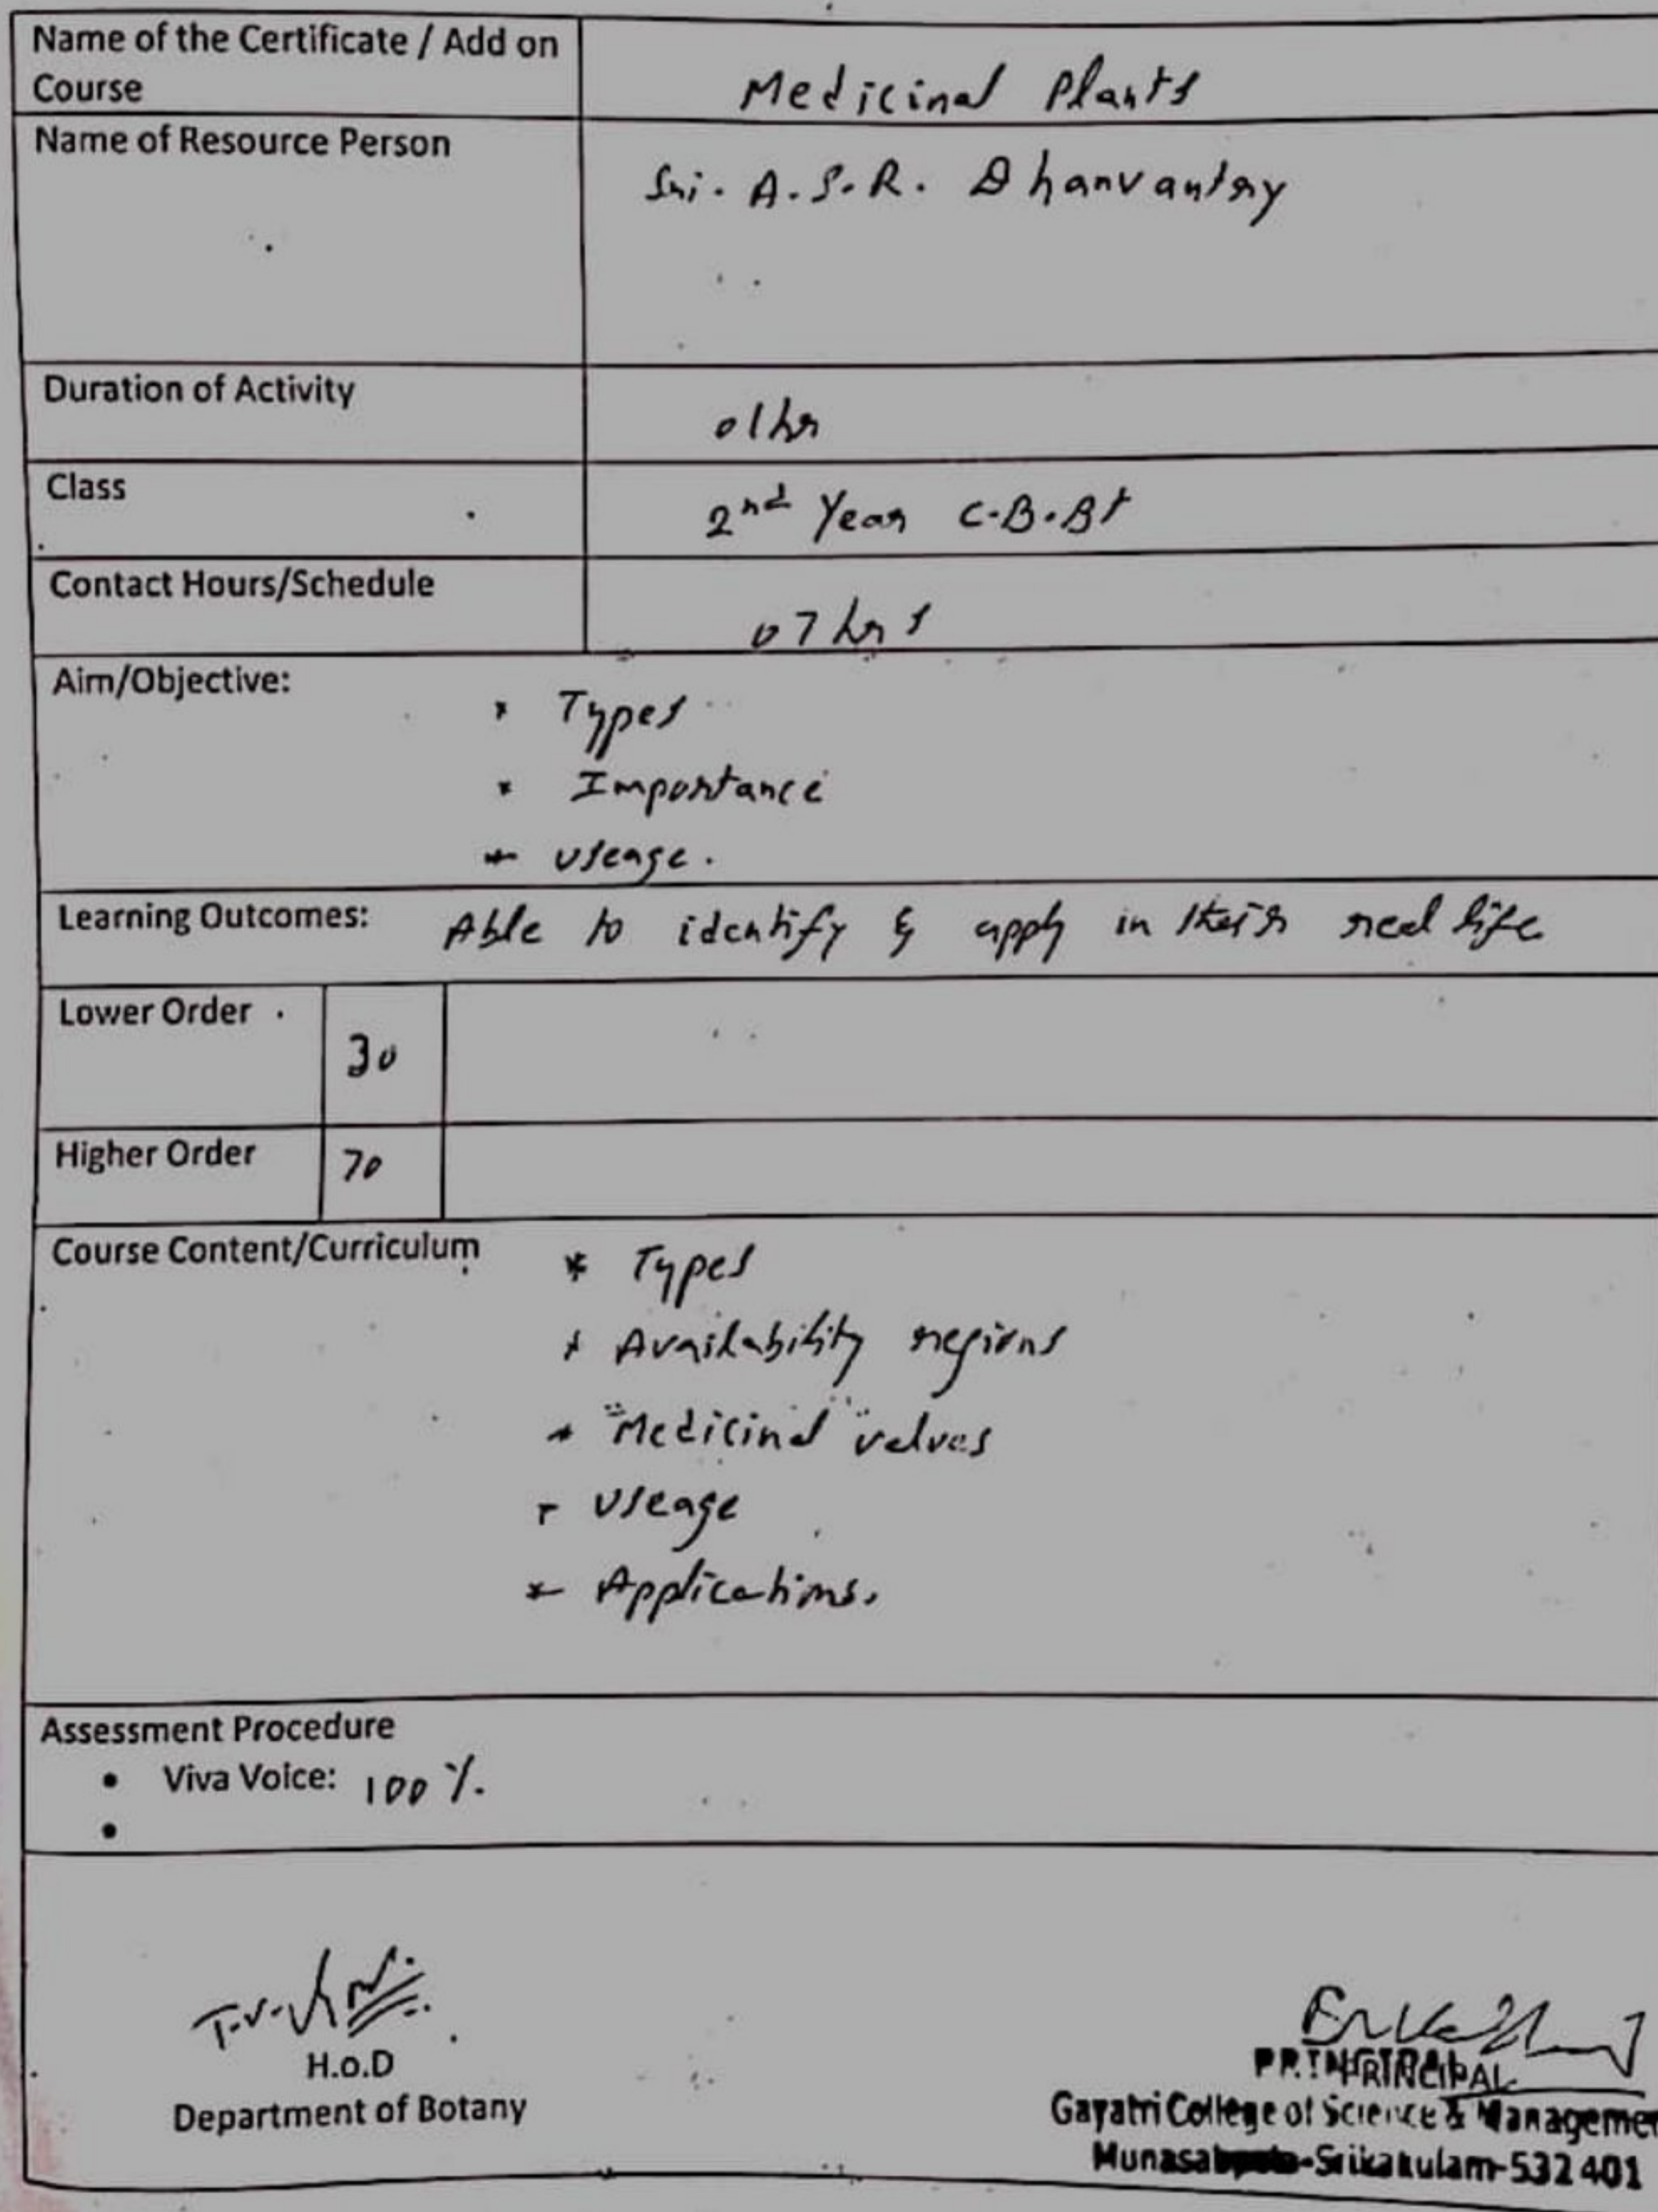 Name of the Certificate / Add on
Course
Medicinal Plants
Name of Resource Person
Sri. A.S.R. Dhanvantry
Duration of Activity
01hr
Class
2nd Year C.B.Bt
Contact Hours/Schedule
07 hrs
Aim/Objective:
* Types
* Importance
* Useage.
Learning Outcomes: Able to identify & apply in their real life
Lower Order
30
Higher Order
70
Course Content/Curriculum
* Types
* Availability regions
* Medicinal values
* Useage
* Applications.
Assessment Procedure
• Viva Voice: 100%
•
H.o.D
Department of Botany
PRINCIPAL
Gayatri College of Science & Managemen
Srikakulam-532 401